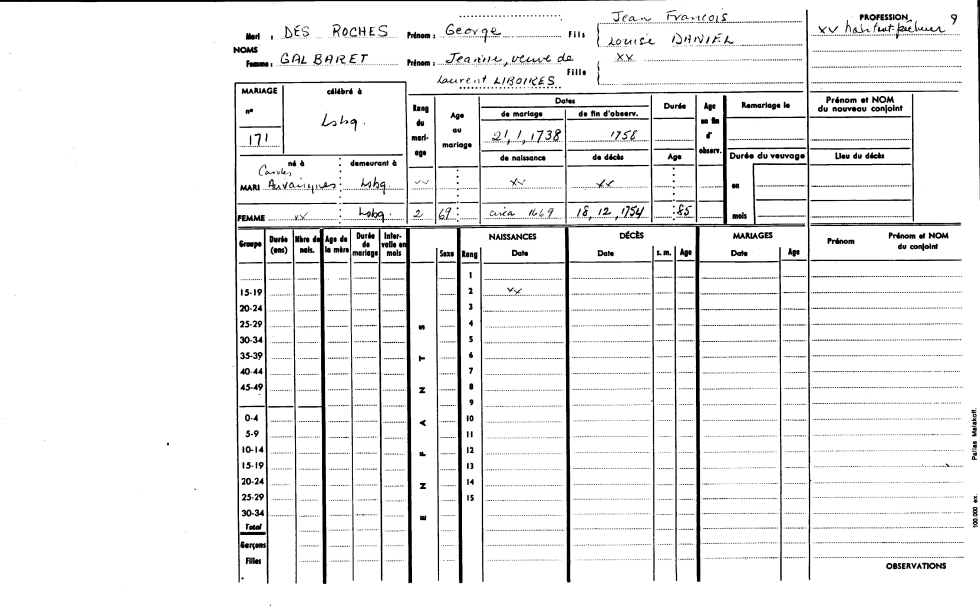 Mari : DES ROCHES Prénom : George Fils Jean Francois
Louise DANIEL
PROFESSION 9
xv habitant-pêcheur
NOMS
Femme : GALBARET Prénom : Jeanne, veuve de
Laurent LIBOIRES Fille xx
MARIAGE célébré à
n° 171 Lsbg.
Rang du mariage
Age au mariage
Dates
de mariage de fin d'observ.
21, 1, 1738 1758
Durée
Age en fin d'observ.
Remariage le
Prénom et NOM du nouveau conjoint
né à demeurant à
de naissance de décès Age
Durée du veuvage Lieu du décès
en
mois
MARI Lsbg xx xx
FEMME xx Lsbg. 2 69 circa 1669 18, 12, 1754 85
Groupe Durée (ans) Nbre de nais. Age de la mère Durée de mariage Intervalle en mois
ENFANTS
Sexe Rang
NAISSANCES Date
DÉCÈS Date s. m. Age
MARIAGES Date Age
Prénom Prénom et NOM du conjoint
1
15-19 2 xx
20-24 3
25-29 4
30-34 5
35-39 6
40-44 7
45-49 8
9
0-4 10
5-9 11
10-14 12
15-19 13
20-24 14
25-29 15
30-34
Total
Garçons
Filles
OBSERVATIONS
100.000 ex. Pallas Malakoff.